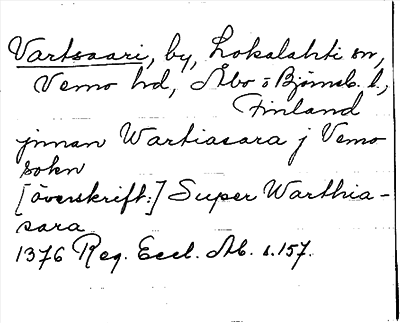 Vartsaari, by, Lokalahti sn,
Vemo hd, Åbo o Björneb. l,
Finland
jnnan Wartiasara j Vemo
sokn
[överskrift:] Super Warthia-
sara
1376 Reg. Eccl. Ab. s. 157.